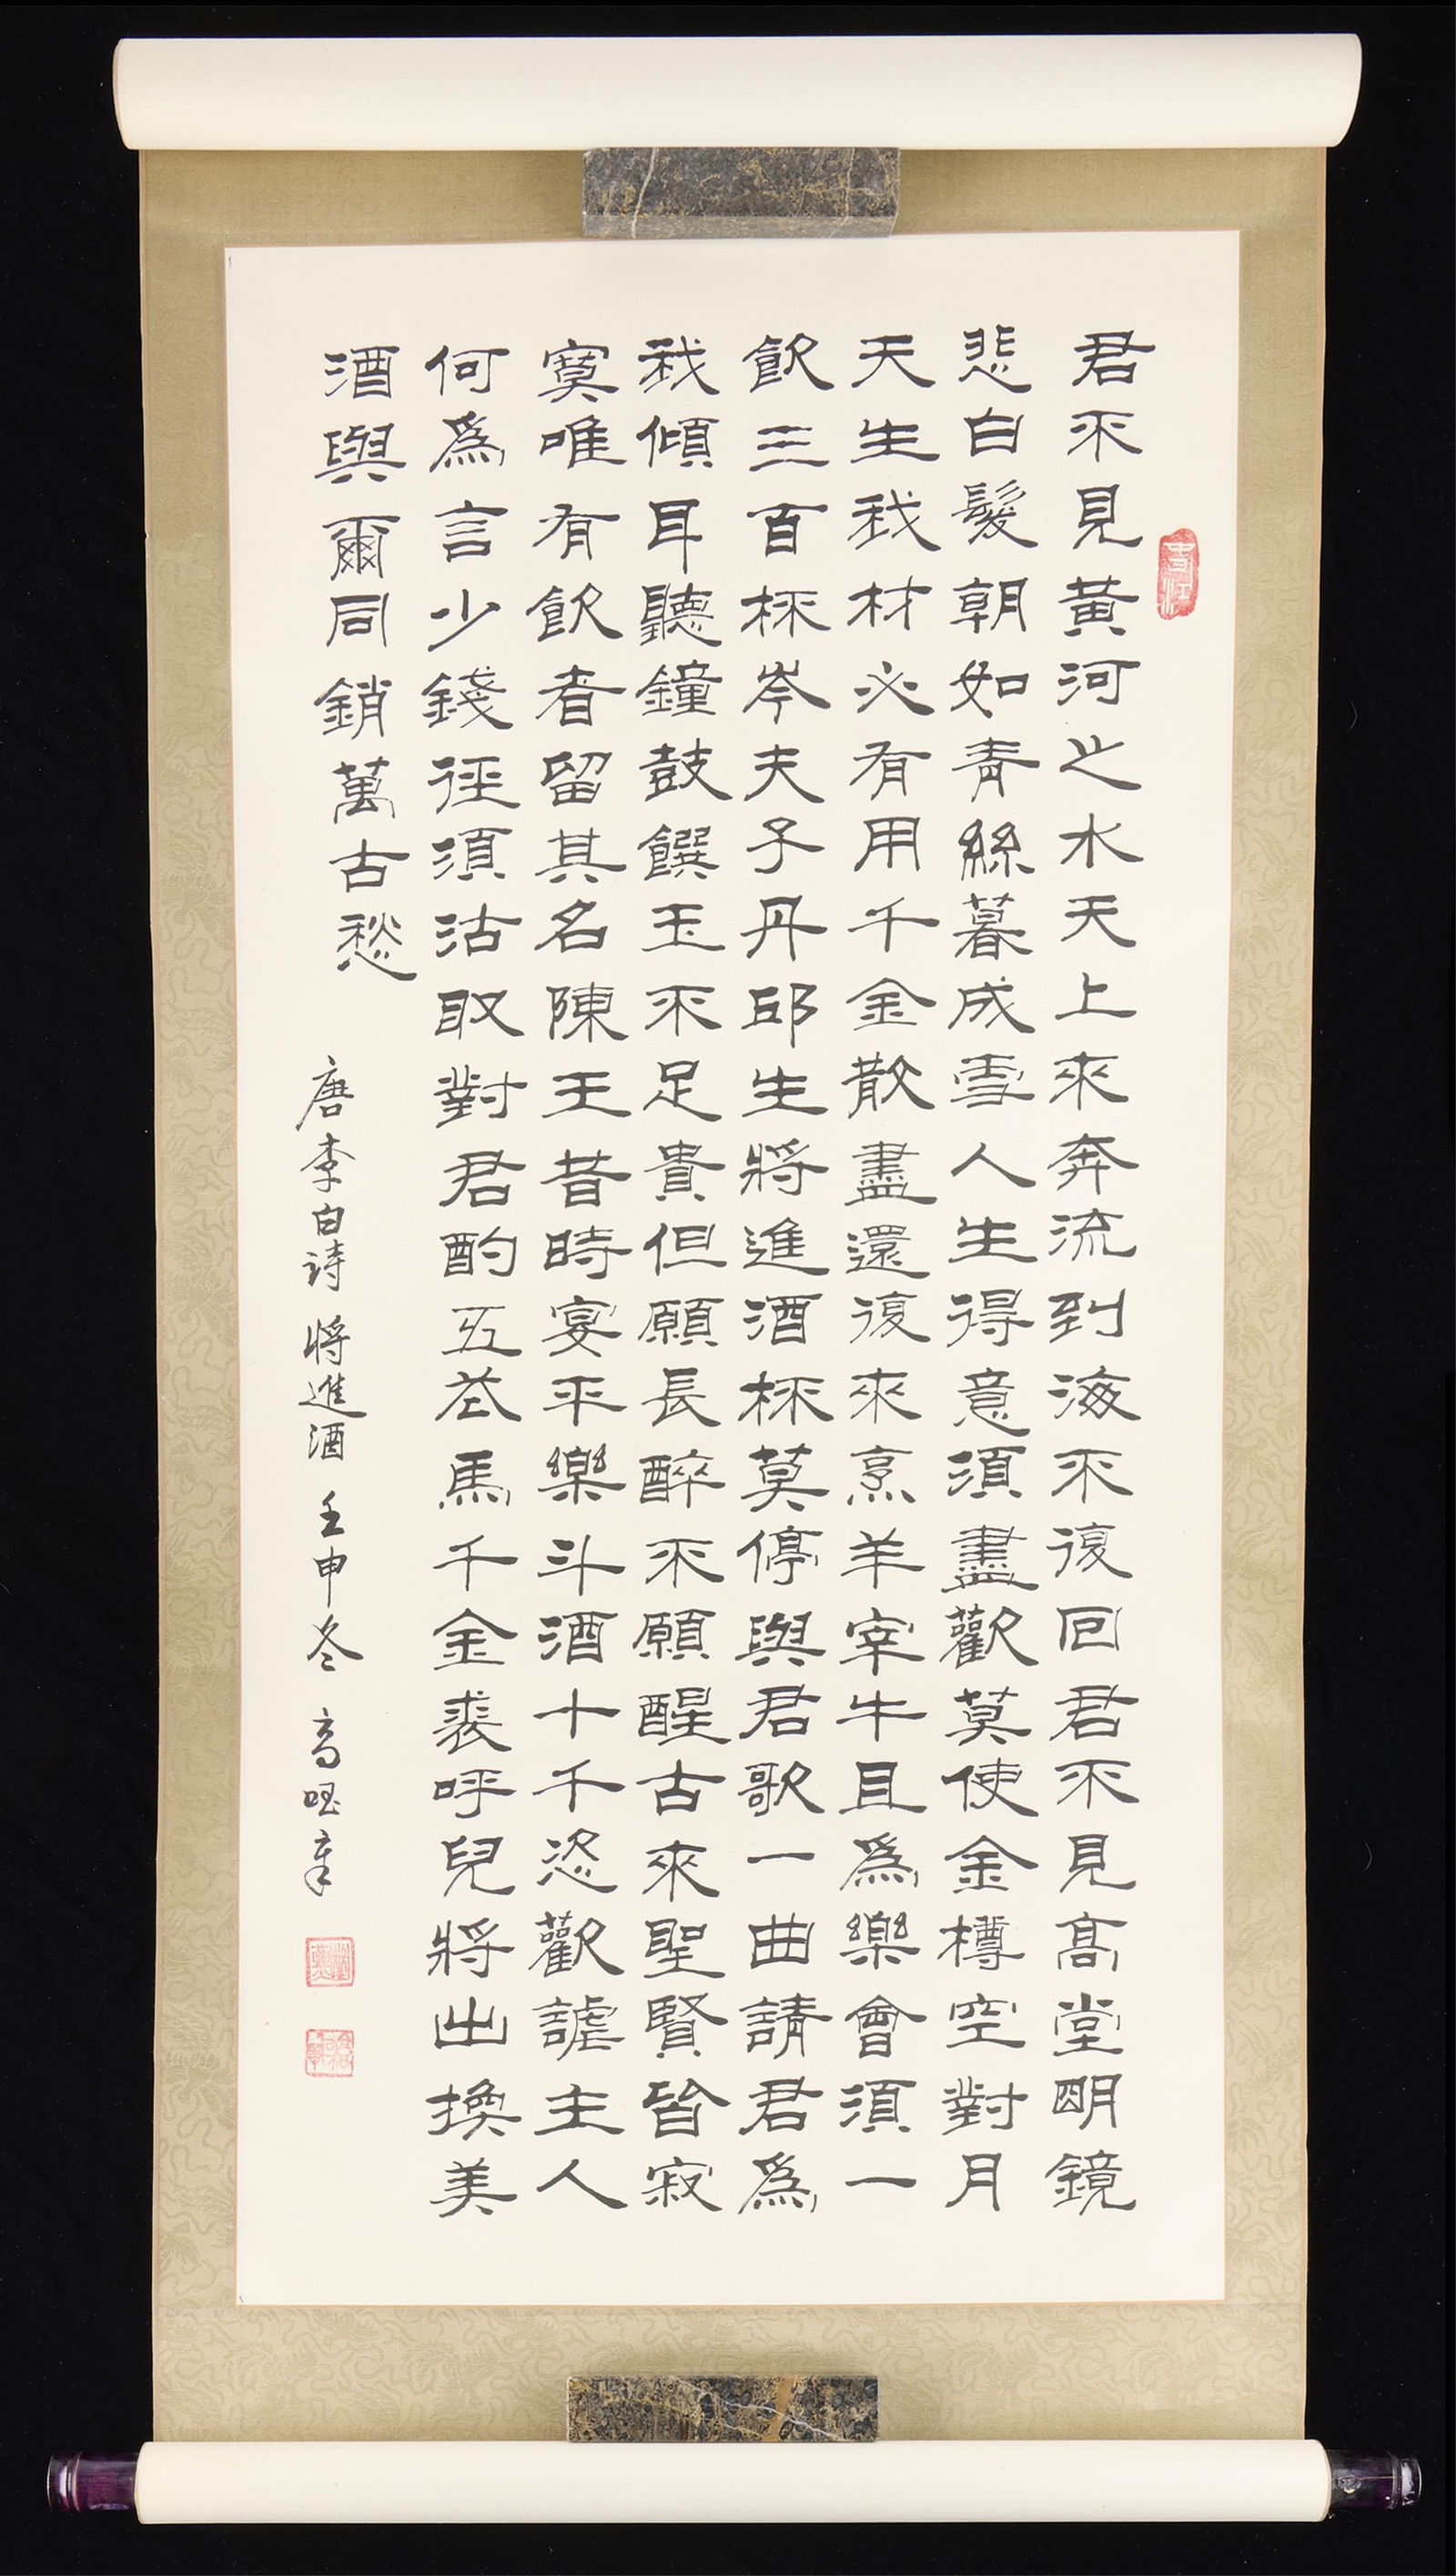 君不見黃河之水天上來奔流到海不復回君不見高堂明鏡
悲白髮朝如青絲暮成雪人生得意須盡歡莫使金樽空對月
天生我材必有用千金散盡還復來烹羊宰牛且爲樂會須一
飲三百杯岑夫子丹邱生將進酒杯莫停與君歌一曲請君爲
我傾耳聽鐘鼓饌玉不足貴但願長醉不願醒古來聖賢皆寂
寞唯有飲者留其名陳王昔時宴平樂斗酒十千恣歡謔主人
何爲言少錢徑須沽取對君酌五花馬千金裘呼兒將出換美
酒與爾同銷萬古愁
唐李白诗 將進酒 壬申冬 高